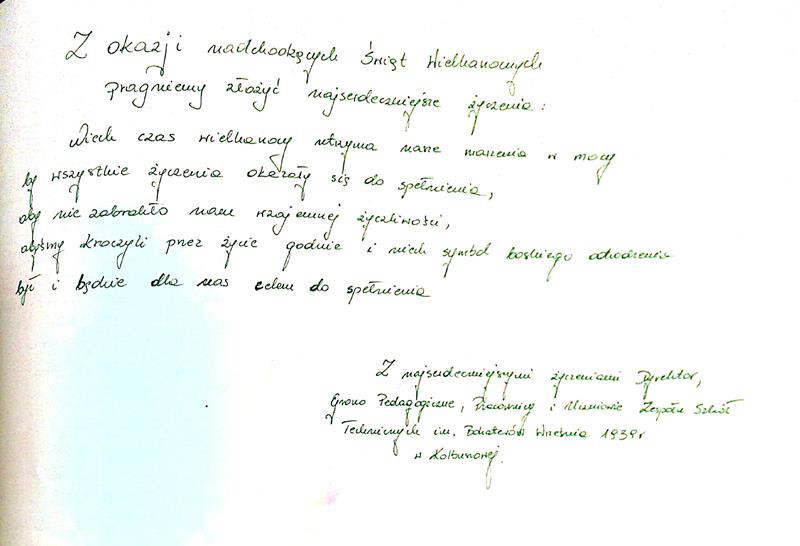 Z okazji nadchodzących Świąt Wielkanocnych
pragniemy złożyć najserdeczniejsze życzenia:
Niech czas wielkanocy utrzyma nasze marzenia w mocy
by wszystkie życzenia okazały się do spełnienia,
aby nie zabrakło nam wzajemnej życzliwości,
abyśmy kroczyli przez życie godnie i niech symbol boskiego odrodzenia
był i będzie dla nas celem do spełnienia
Z najserdeczniejszymi życzeniami Dyrektor,
Grono Pedagogiczne, Pracownicy i Uczniowie Zespołu Szkół
Technicznych im. Bohaterów Września 1939r
w Kolbuszowej.